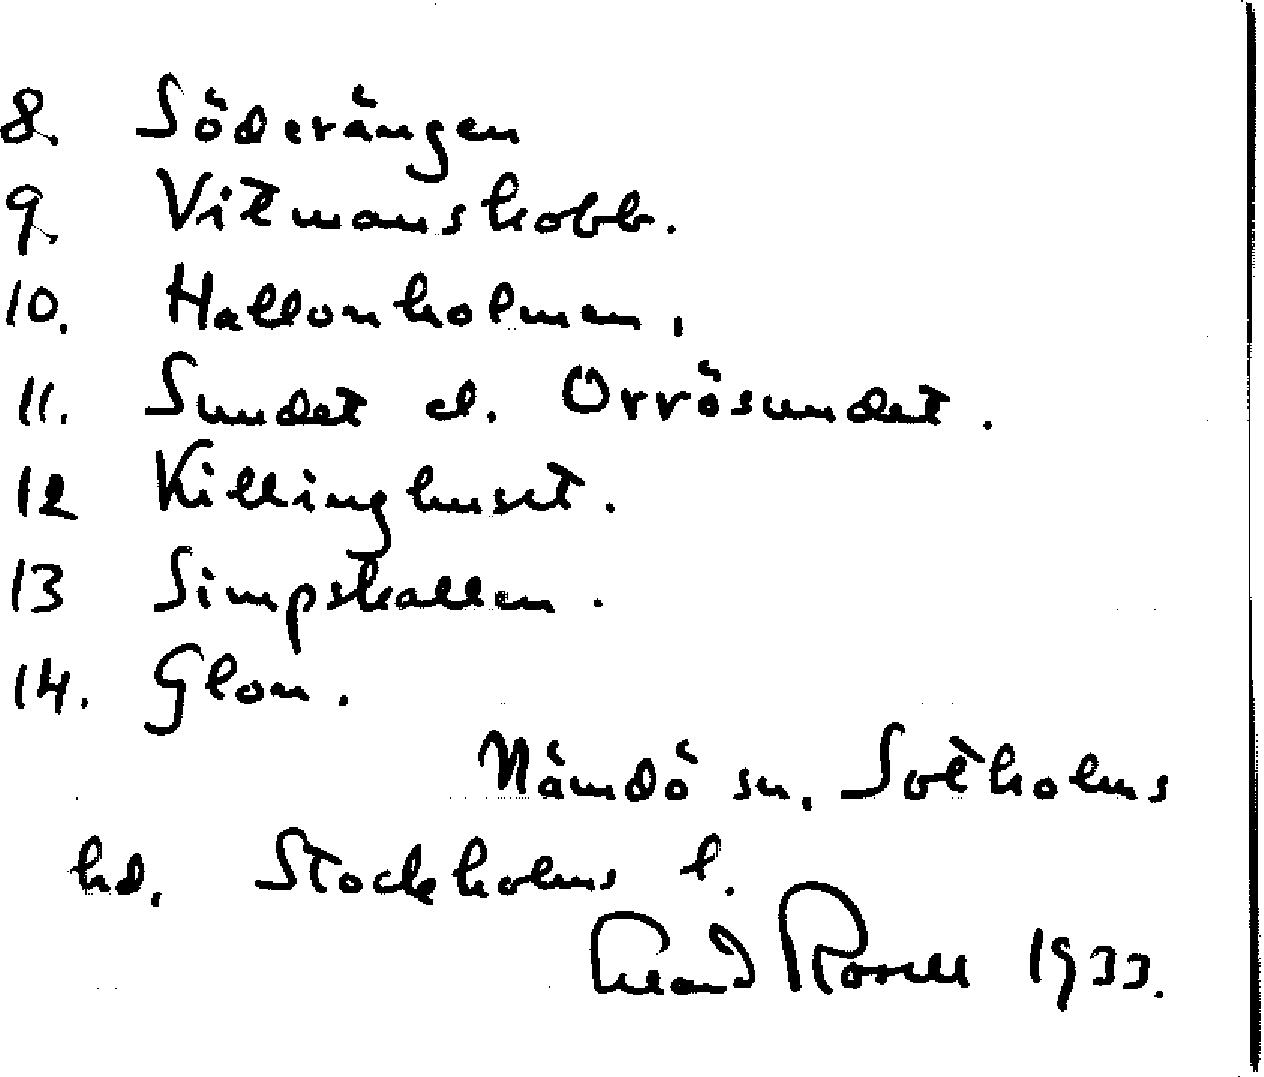 8. Söderängen
9. Vitmanskobb.
10. Hallonholmen.
11. Sundet el. Orrösundet.
12 Killinghuset.
13 Simpskallen.
14. Glon.
Nämdö sn. Sotholms
hd. Stockholms l.
1933.